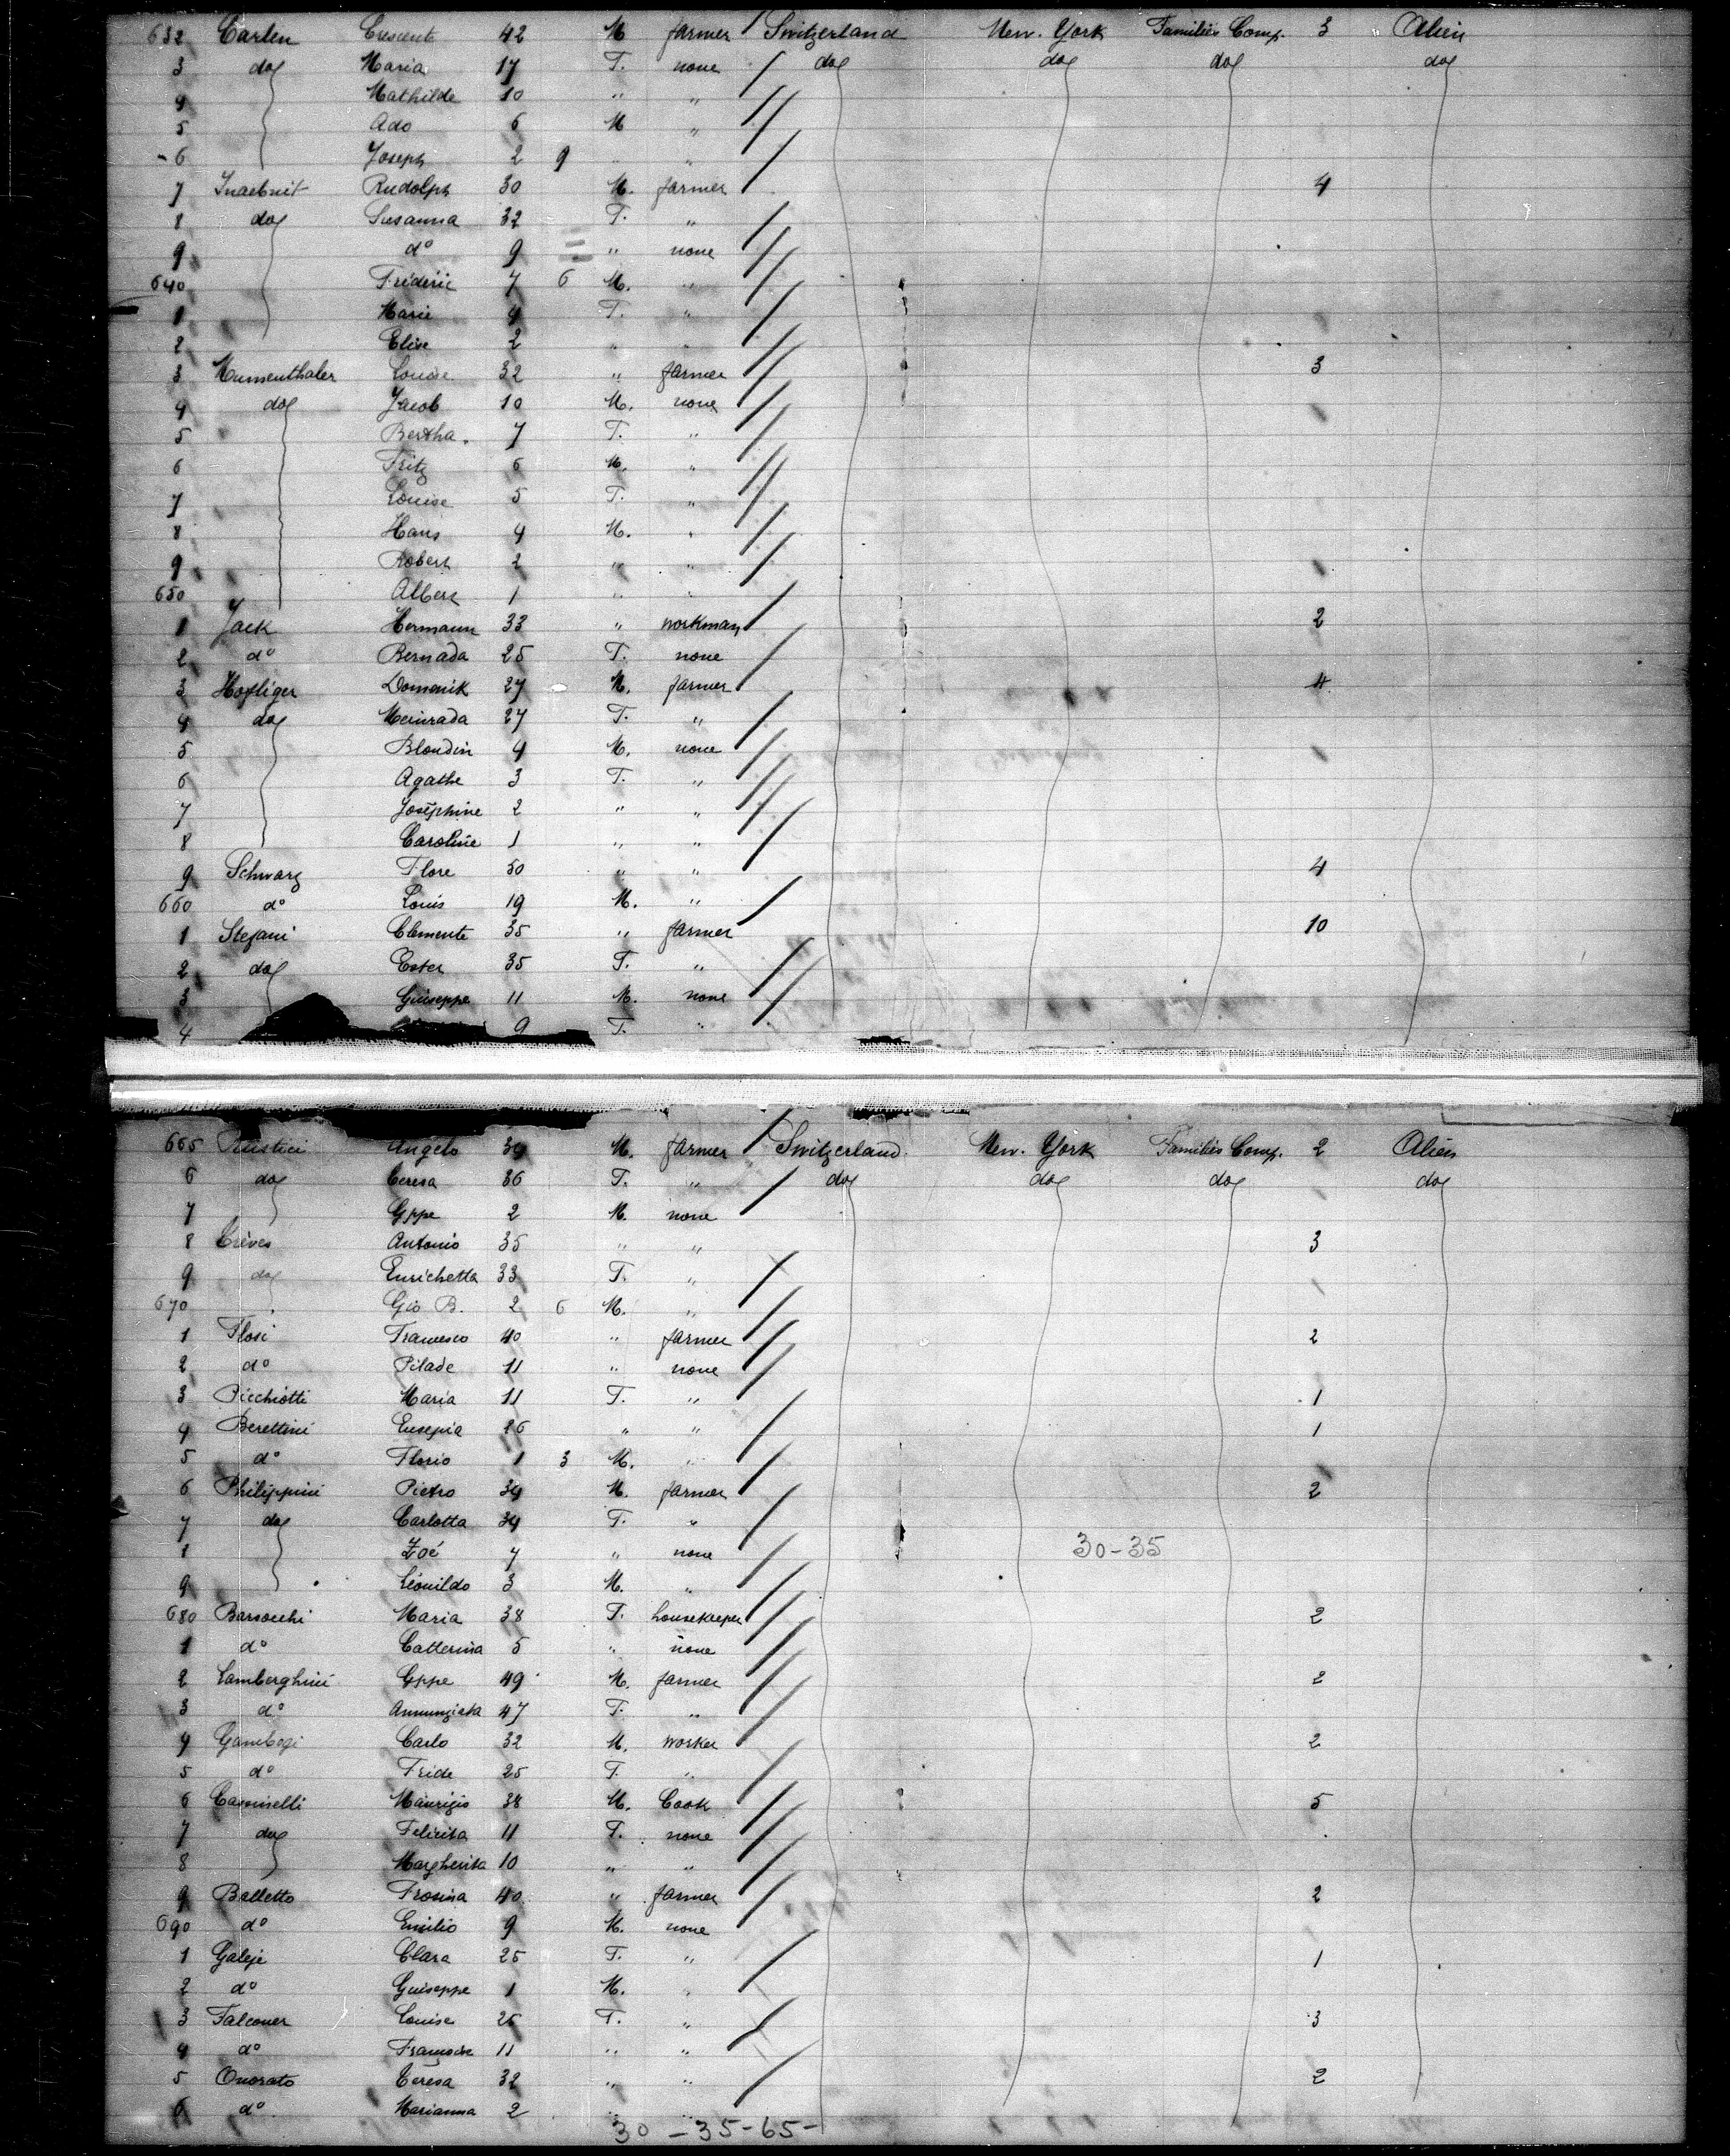 632 Carlen Crescent 42 M farmer Switzerland New. York Families Comp. 3 Alien
3 do Maria 17 F. none do do do do
4 Mathilde 10 " "
5 Ado 6 M "
6 Joseph 2 9 " "
7 Inaebnit Rudolph 30 M. farmer 4
8 do Susanna 32 F. "
9 do 9 " none
640 Fréderic 7 6 M. "
1 Marie 4 F. "
2 Elise 2 " "
3 Mumenthaler Louise 32 " farmer 3
4 do Jacob 10 M. none
5 Bertha. 7 F. "
6 Fritz 6 M. "
7 Louise 5 F. "
8 Hans 4 M. "
9 Robert 2 " "
650 Albert 1 " "
1 Jack Hermann 33 " workman 2
2 do Bernada 25 F. none
3 Hofliger Domenik 27 M. farmer 4
4 do Meinrada 27 F. "
5 Blondin 4 M. none
6 Agathe 3 F. "
7 Joséphine 2 " "
8 Caroline 1 " "
9 Schwarz Flore 50 " " 4
660 do Louis 19 M. "
1 Stefani Clemente 35 " farmer 10
2 do Ester 35 F. "
3 Giuseppe 11 M. none
4 9 F. "
665 Rustici Angelo 34 M. farmer Switzerland. New. York Families Comp. 2 Alien
6 do Teresa 36 F. " do do do do
7 Gppe 2 M. none
8 Crèves Antonio 35 " " 3
9 do Enrichetta 33 F. "
670 Gio B. 2 6 M. "
1 Flosi Francesco 40 " farmer 2
2 do Pilade 11 " none
3 Picchiotti Maria 11 F. " 1
4 Berettini Eusepia 26 " " 1
5 do Florio 1 3 M. "
6 Philippini Pietro 34 M. farmer 2
7 do Carlotta 34 F. "
8 Zoé 7 " none 30-35
9 Léonildo 3 M. "
680 Barsocchi Maria 38 F. housekeeper 2
1 do Catterina 5 " none
2 Lamberghini Gppe 49 M. farmer 2
3 do Annunziata 47 F. "
4 Gambogi Carlo 32 M. worker 2
5 do Fride 25 F. "
6 Caminelli Maurizio 38 M. Cook 5
7 do Felicita 11 F. none
8 Margherita 10 " "
9 Balletto Frosina 40 " farmer 2
690 do Emilio 9 M. none
1 Galeje Clara 25 F. " 1
2 do Guiseppe 1 M. "
3 Falconer Louise 25 F. " 3
4 do 11 " "
5 Onorato Teresa 32 " " 2
6 do Marianna 2 " "
30 - 35-65-